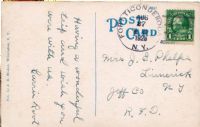 POST CARD
FORT TICONDEROGA
AUG
27
N.Y.
Having a wonderful
trip and wish you
were with us.
Mrs J. B. Phelps
Limerick
Jeff Co N Y
R. F. D.